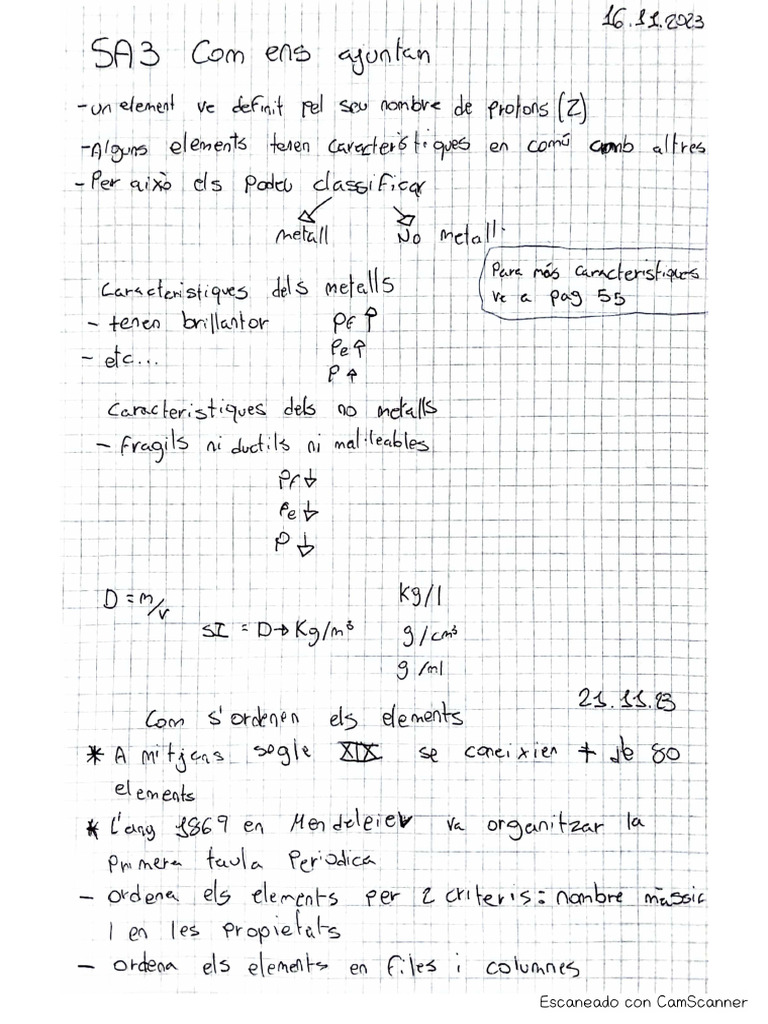 16.11.2023
SA3 Com ens ajuntan
- un element ve definit pel seu nombre de protons (Z)
- Alguns elements tenen caracteristiques en comú amb altres
- Per això els podeu classificar
metall No metall.
Para más caracteristiques
ve a pag 55
Caracteristiques dels metalls
- tenen brillantor PF ↑
- etc... Pe ↑
P ↑
Caracteristiques dels no metalls
- Fragils ni ductils ni mal·leables
PF ↓
Pe ↓
P ↓
D = m/v Kg/l
SI = D → Kg/m³ g/cm³
g/ml
21.11.23
Com s'ordenen els elements
* A mitjans segle XIX se coneixien + de 80
elements
* L'any 1869 en Mendeleiev va organitzar la
primera taula Periodica
- ordena els elements per 2 criteris: nombre màssic
I en les propietats
- ordena els elements en files i columnes
Escaneado con CamScanner